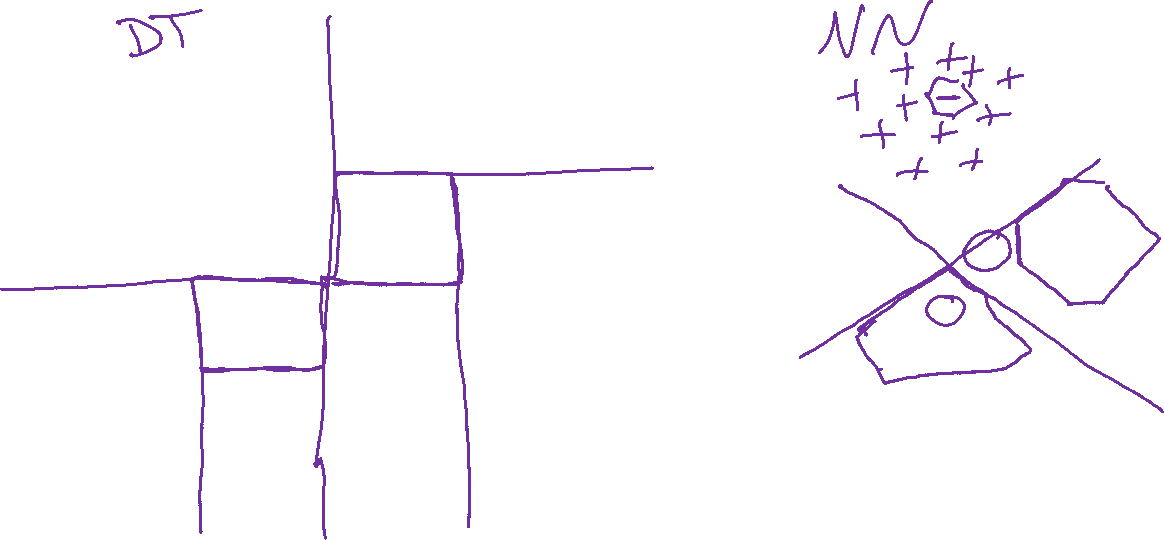 DT
NN
+ + + +
+ + - +
+ +
+ +